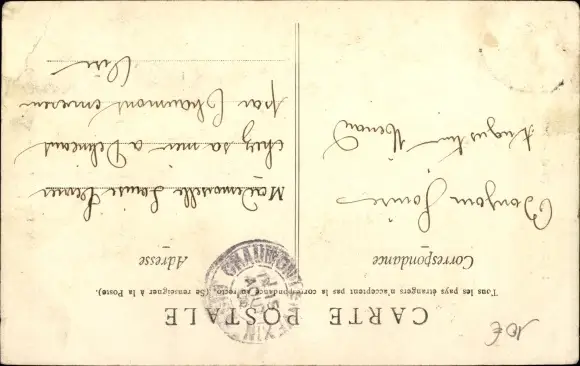 CARTE POSTALE
Tous les pays étrangers n'acceptent pas la correspondance au recto. (Se renseigner à la Poste).
Correspondance
Bonjour Louise
Augustin
Adresse
Mademoiselle Louise
chez sa mère a
par Chaumont en vexin
Oise
CHAUMONT-EN-VEXIN
10€